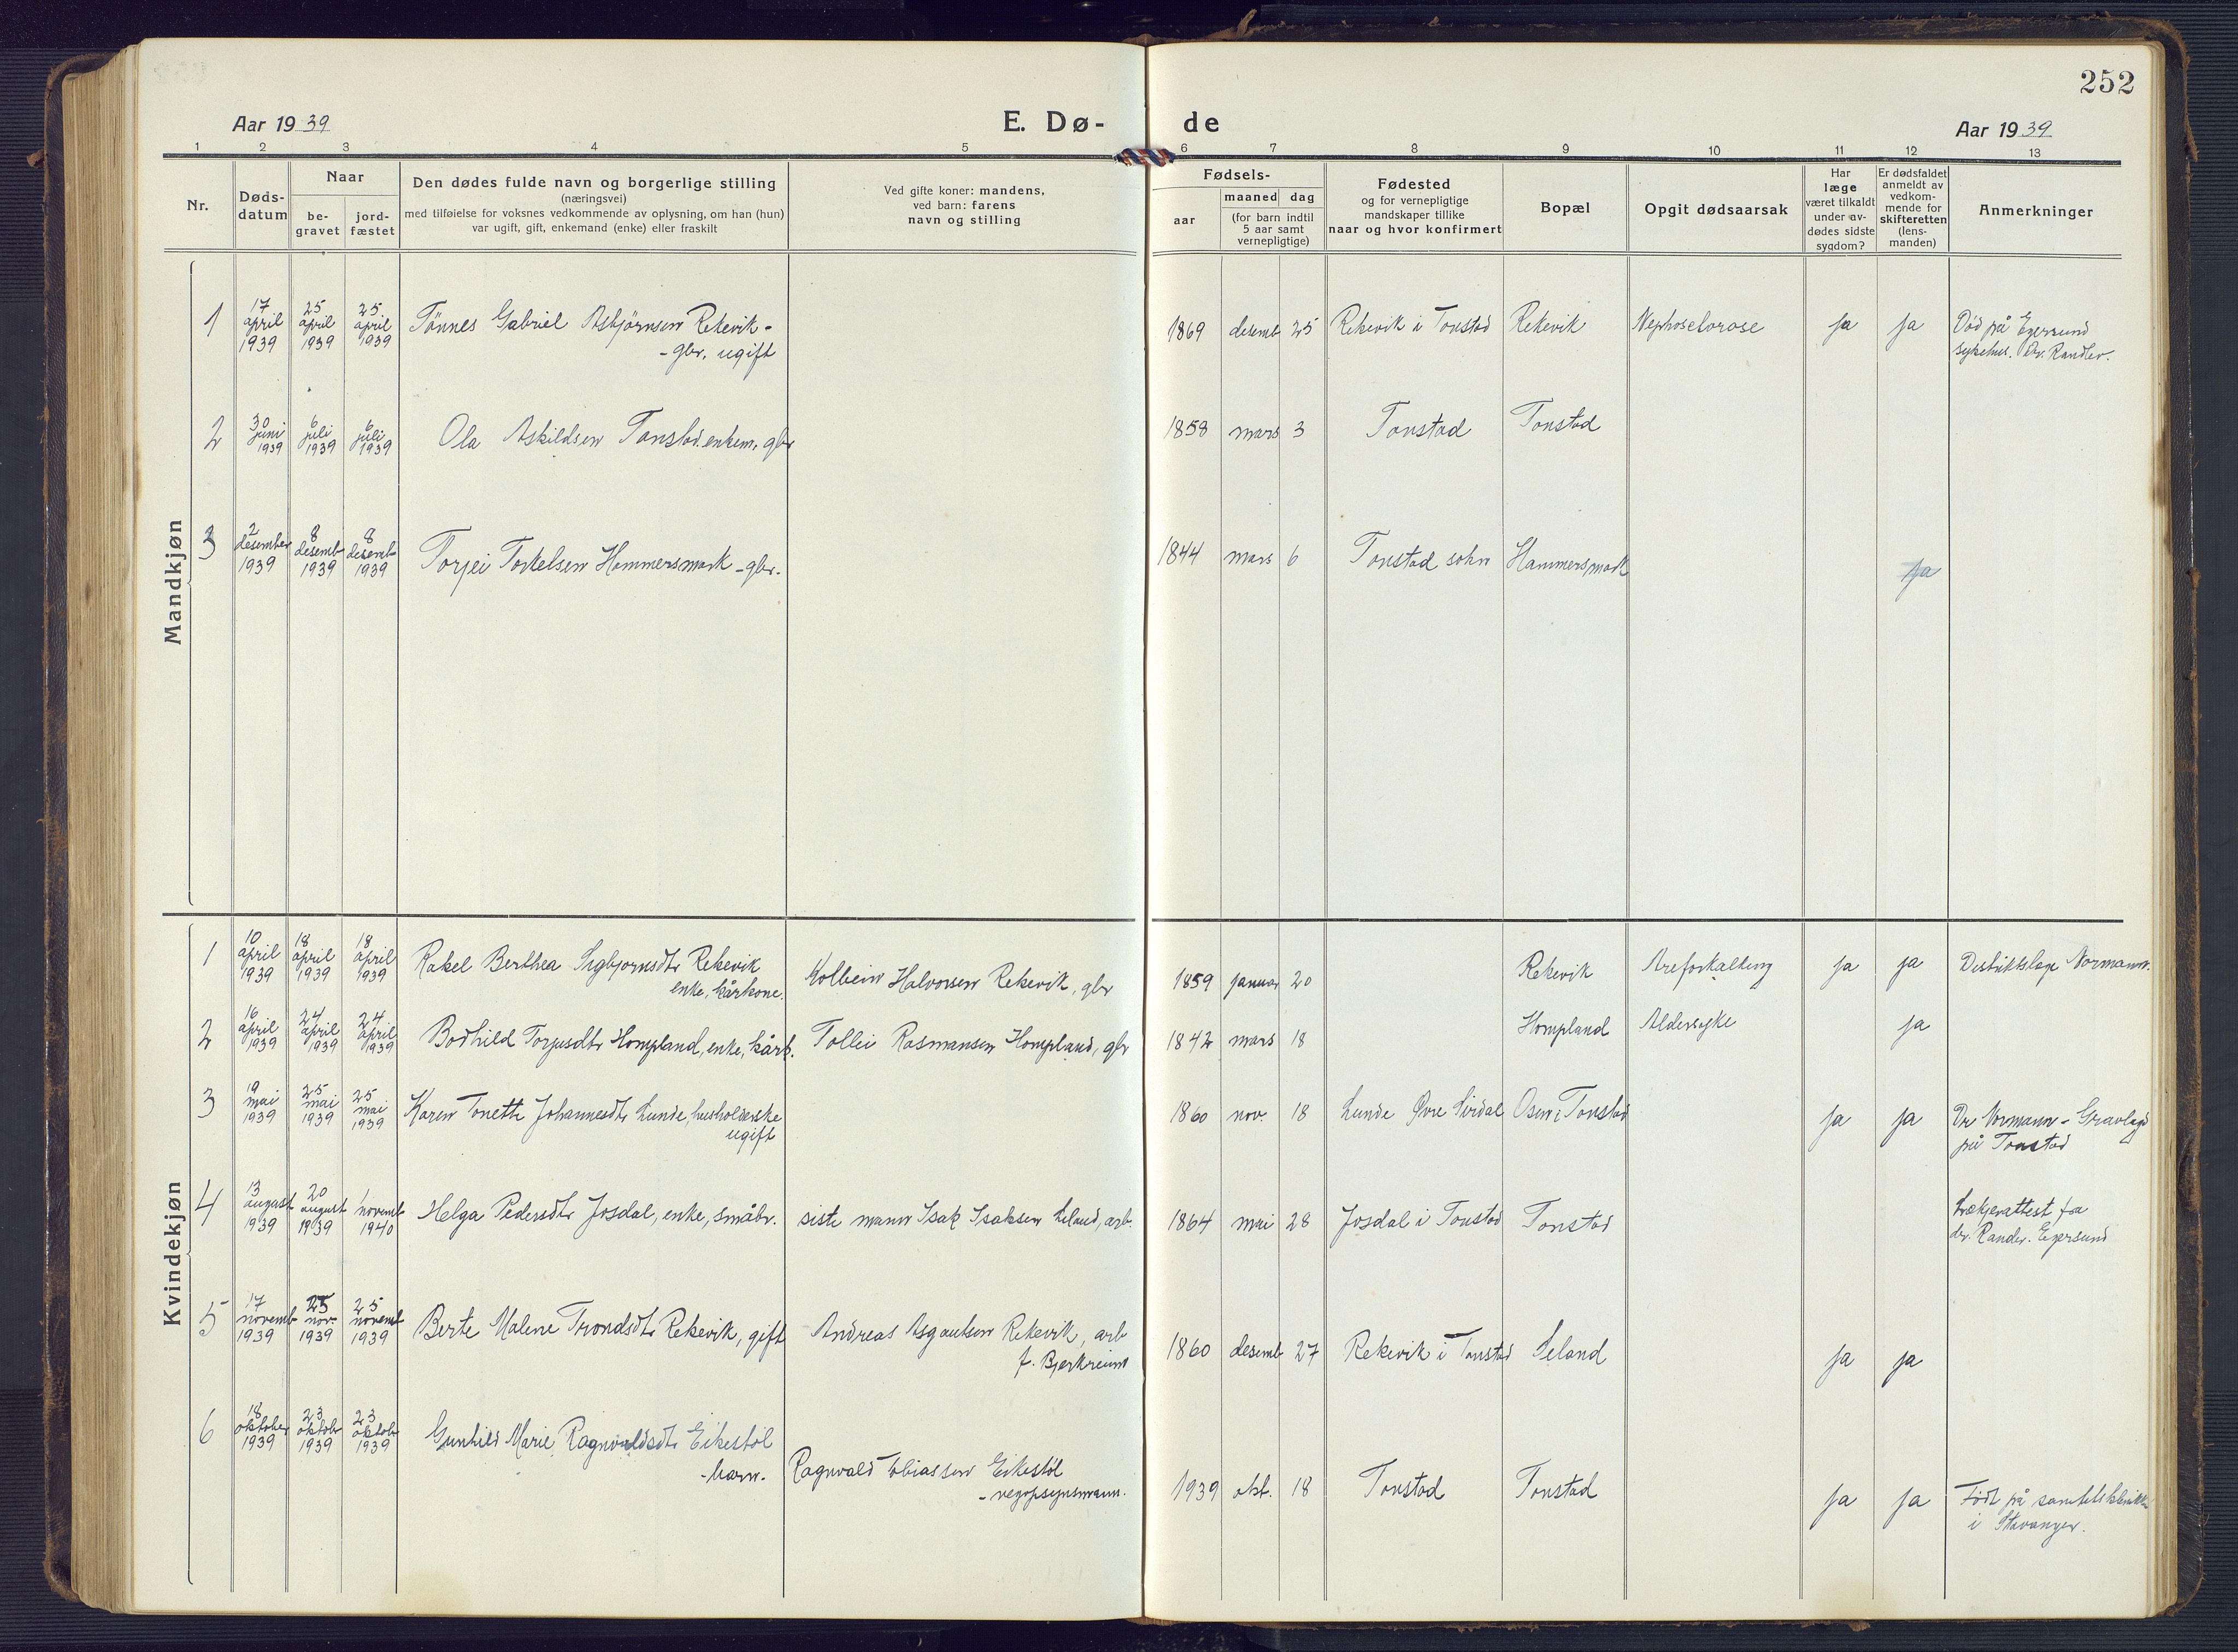 252
Aar 1939
E. Dø-
de
Aar 1939
1 2 3 4 5 6 7 8 9 10 11 12 13
Nr.
Døds-
datum
Naar
be-
gravet
jord-
fæstet
Den dødes fulde navn og borgerlige stilling
(næringsvei)
med tilføielse for voksnes vedkommende av oplysning, om han (hun)
var ugift, gift, enkemand (enke) eller fraskilt
Ved gifte koner: mandens,
ved barn: farens
navn og stilling
Fødsels-
aar
maaned dag
(for barn indtil
5 aar samt
vernepligtige)
Fødested
og for vernepligtige
mandskaper tillike
naar og hvor konfirmert
Bopæl
Opgit dødsaarsak
Har
læge
været tilkaldt
under av-
dødes sidste
sygdom?
Er dødsfaldet
anmeldt av
vedkom-
mende for
skifteretten
(lens-
manden)
Anmerkninger
Mandkjøn
1
17
april
1939
25
april
1939
25
april
1939
Tønnes Gabriel Asbjørnsen Rekevik -
- gbr. ugift
1869 desemb 25
Rekevik i Tonstad
Rekevik
ja
ja
Død på Egersund
sykehus. Dr.
2
30
juni
1939
6
juli
1939
6
juli
1939
Ola Askildsen Tonstad. enkem. gbr
1858 mars 3
Tonstad
Tonstad
3
2
desember
1939
8
desemb
1939
8
desemb
1939
Torjei Torkelsen Hammersmark - gbr.
1844 mars 6
Tonstad sokn
Hammersmark
ja
Kvindekjøn
1
10
april
1939
18
april
1939
18
april
1939
Rakel Berthea Sigbjørnsdtr Rekevik
enke, kårkone.
Kolbein Halvorsen Rekevik, gbr
1859 januar 20
Rekevik
Areforkalking
ja
ja
Distriktslæge Normann.
2
16
april
1939
24
april
1939
24
april
1939
Bodhild Torjusdtr Hompland, enke, kårk.
Tollei Rasmansen Hompland, gbr
1842 mars 18
Hompland
Aldersyke
ja
3
19
mai
1939
25
mai
1939
25
mai
1939
Karen Tonette Johannesdtr Lunde, husholderske
ugift
1860 nov. 18
Lunde Øvre Sirdal
Osen i Tonstad
ja
ja
Dr Normann - Gravlagd
på Tonstad
4
13
august
1939
20
august
1939
1
novemb
1940
Helga Pedersdtr Josdal, enke, småbr.
siste mann Isak Isaksen Liland, arb.
1864 mai 28
Josdal i Tonstad
Tonstad
Lækjerattest fra
dr. Egersund
5
17
novemb
1939
25
nov.
1939
25
novemb
1939
Berte Malene Trondsdtr Rekevik, gift
Andreas Asgautsen Rekevik, arb
f. Bjerkreim
1860 desemb 27
Rekevik i Tonstad
Seland
ja
ja
6
18
oktober
1939
23
oktobr
1939
23
oktobr
1939
Gunhild Marie Ragnvaldsdtr Eikestøl
- barn.
Ragnvald Tobiassen Eikestøl
- vegopsynsmann.
1939 okt. 18
Tonstad
Tonstad
ja
ja
Født på
i Stavanger.